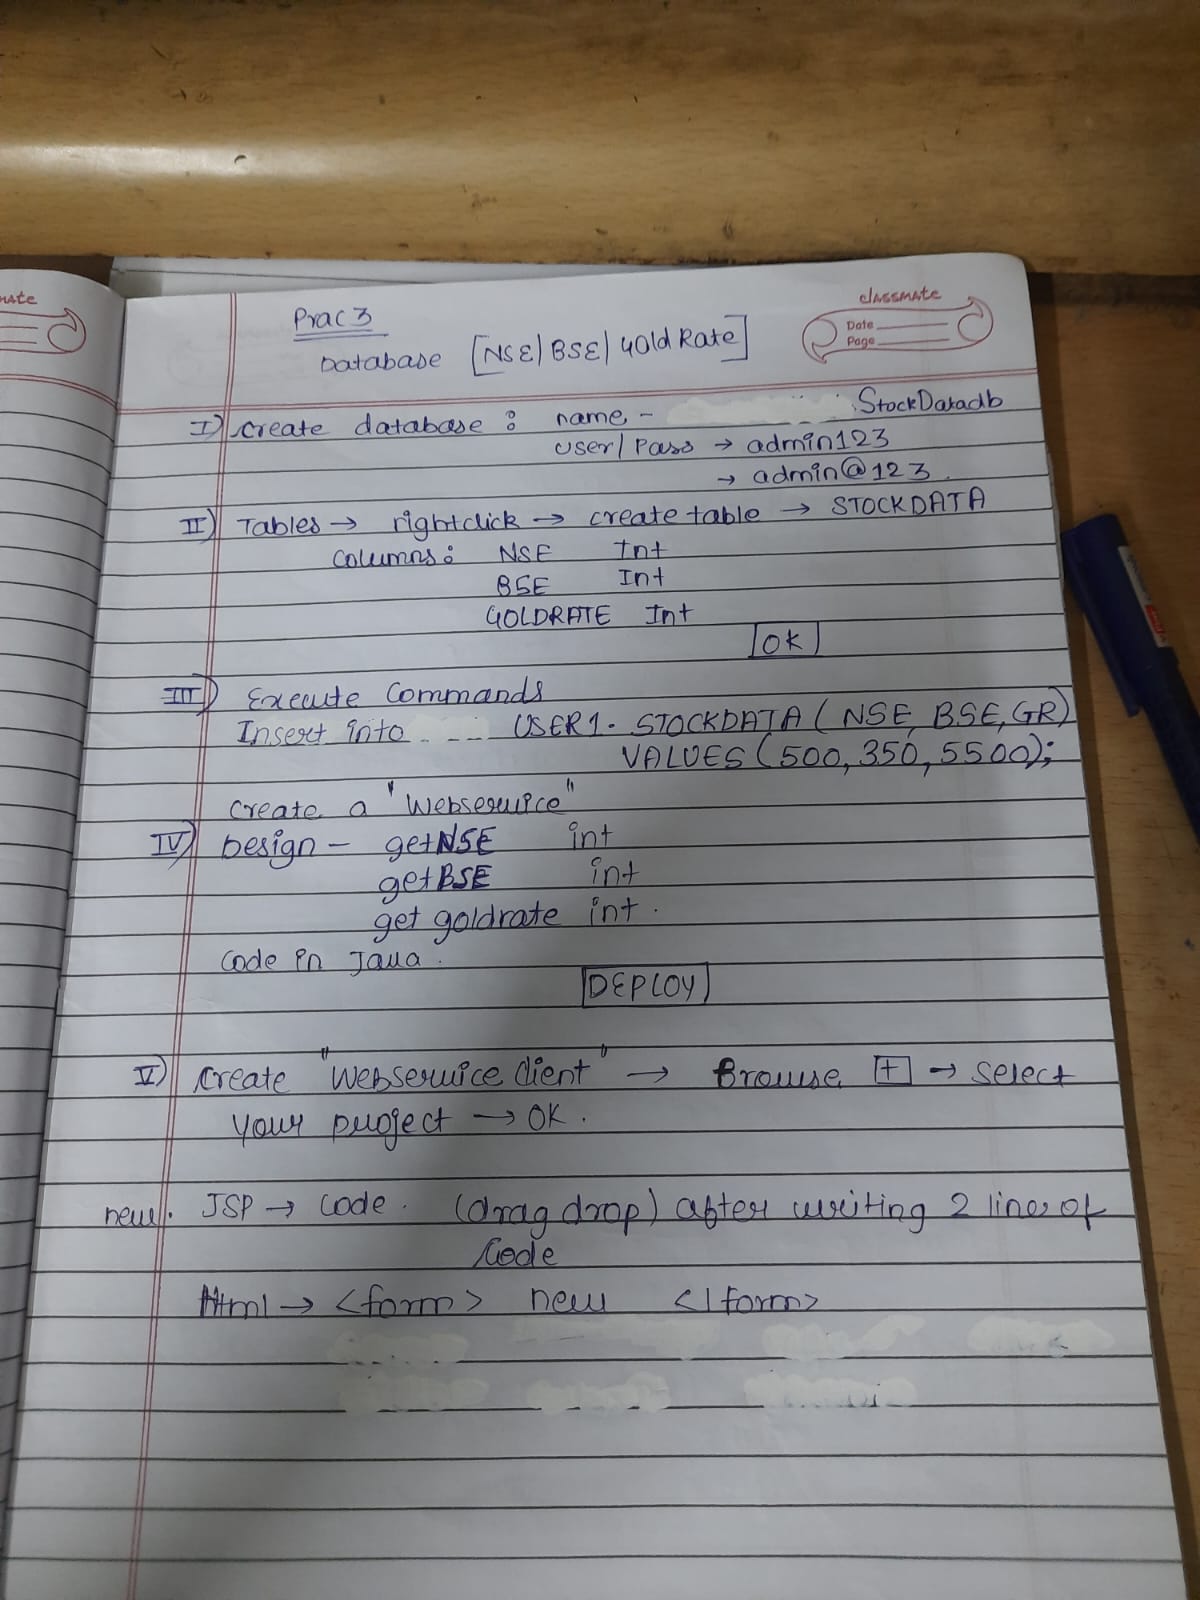 mate
classmate
Date
Page
Prac 3
Database [NSE/BSE/Gold Rate]
I) Create database : name - StockDatadb
User/Pass → admin123
→ admin@123.
II) Tables → rightclick → create table → STOCKDATA
Columns : NSE Int
BSE Int
GOLDRATE Int
OK
III) Execute Commands
Insert into USER1. STOCKDATA (NSE, BSE, GR)
VALUES (500, 350, 5500);
Create a "Webservice"
IV) Design - getNSE int
getBSE int
get goldrate int.
Code in Java.
DEPLOY
V) Create "Webservice client" → Browse + → select
your project → OK.
new. JSP → Code. (drag drop) after writing 2 lines of
Code
Html → <form> new </form>